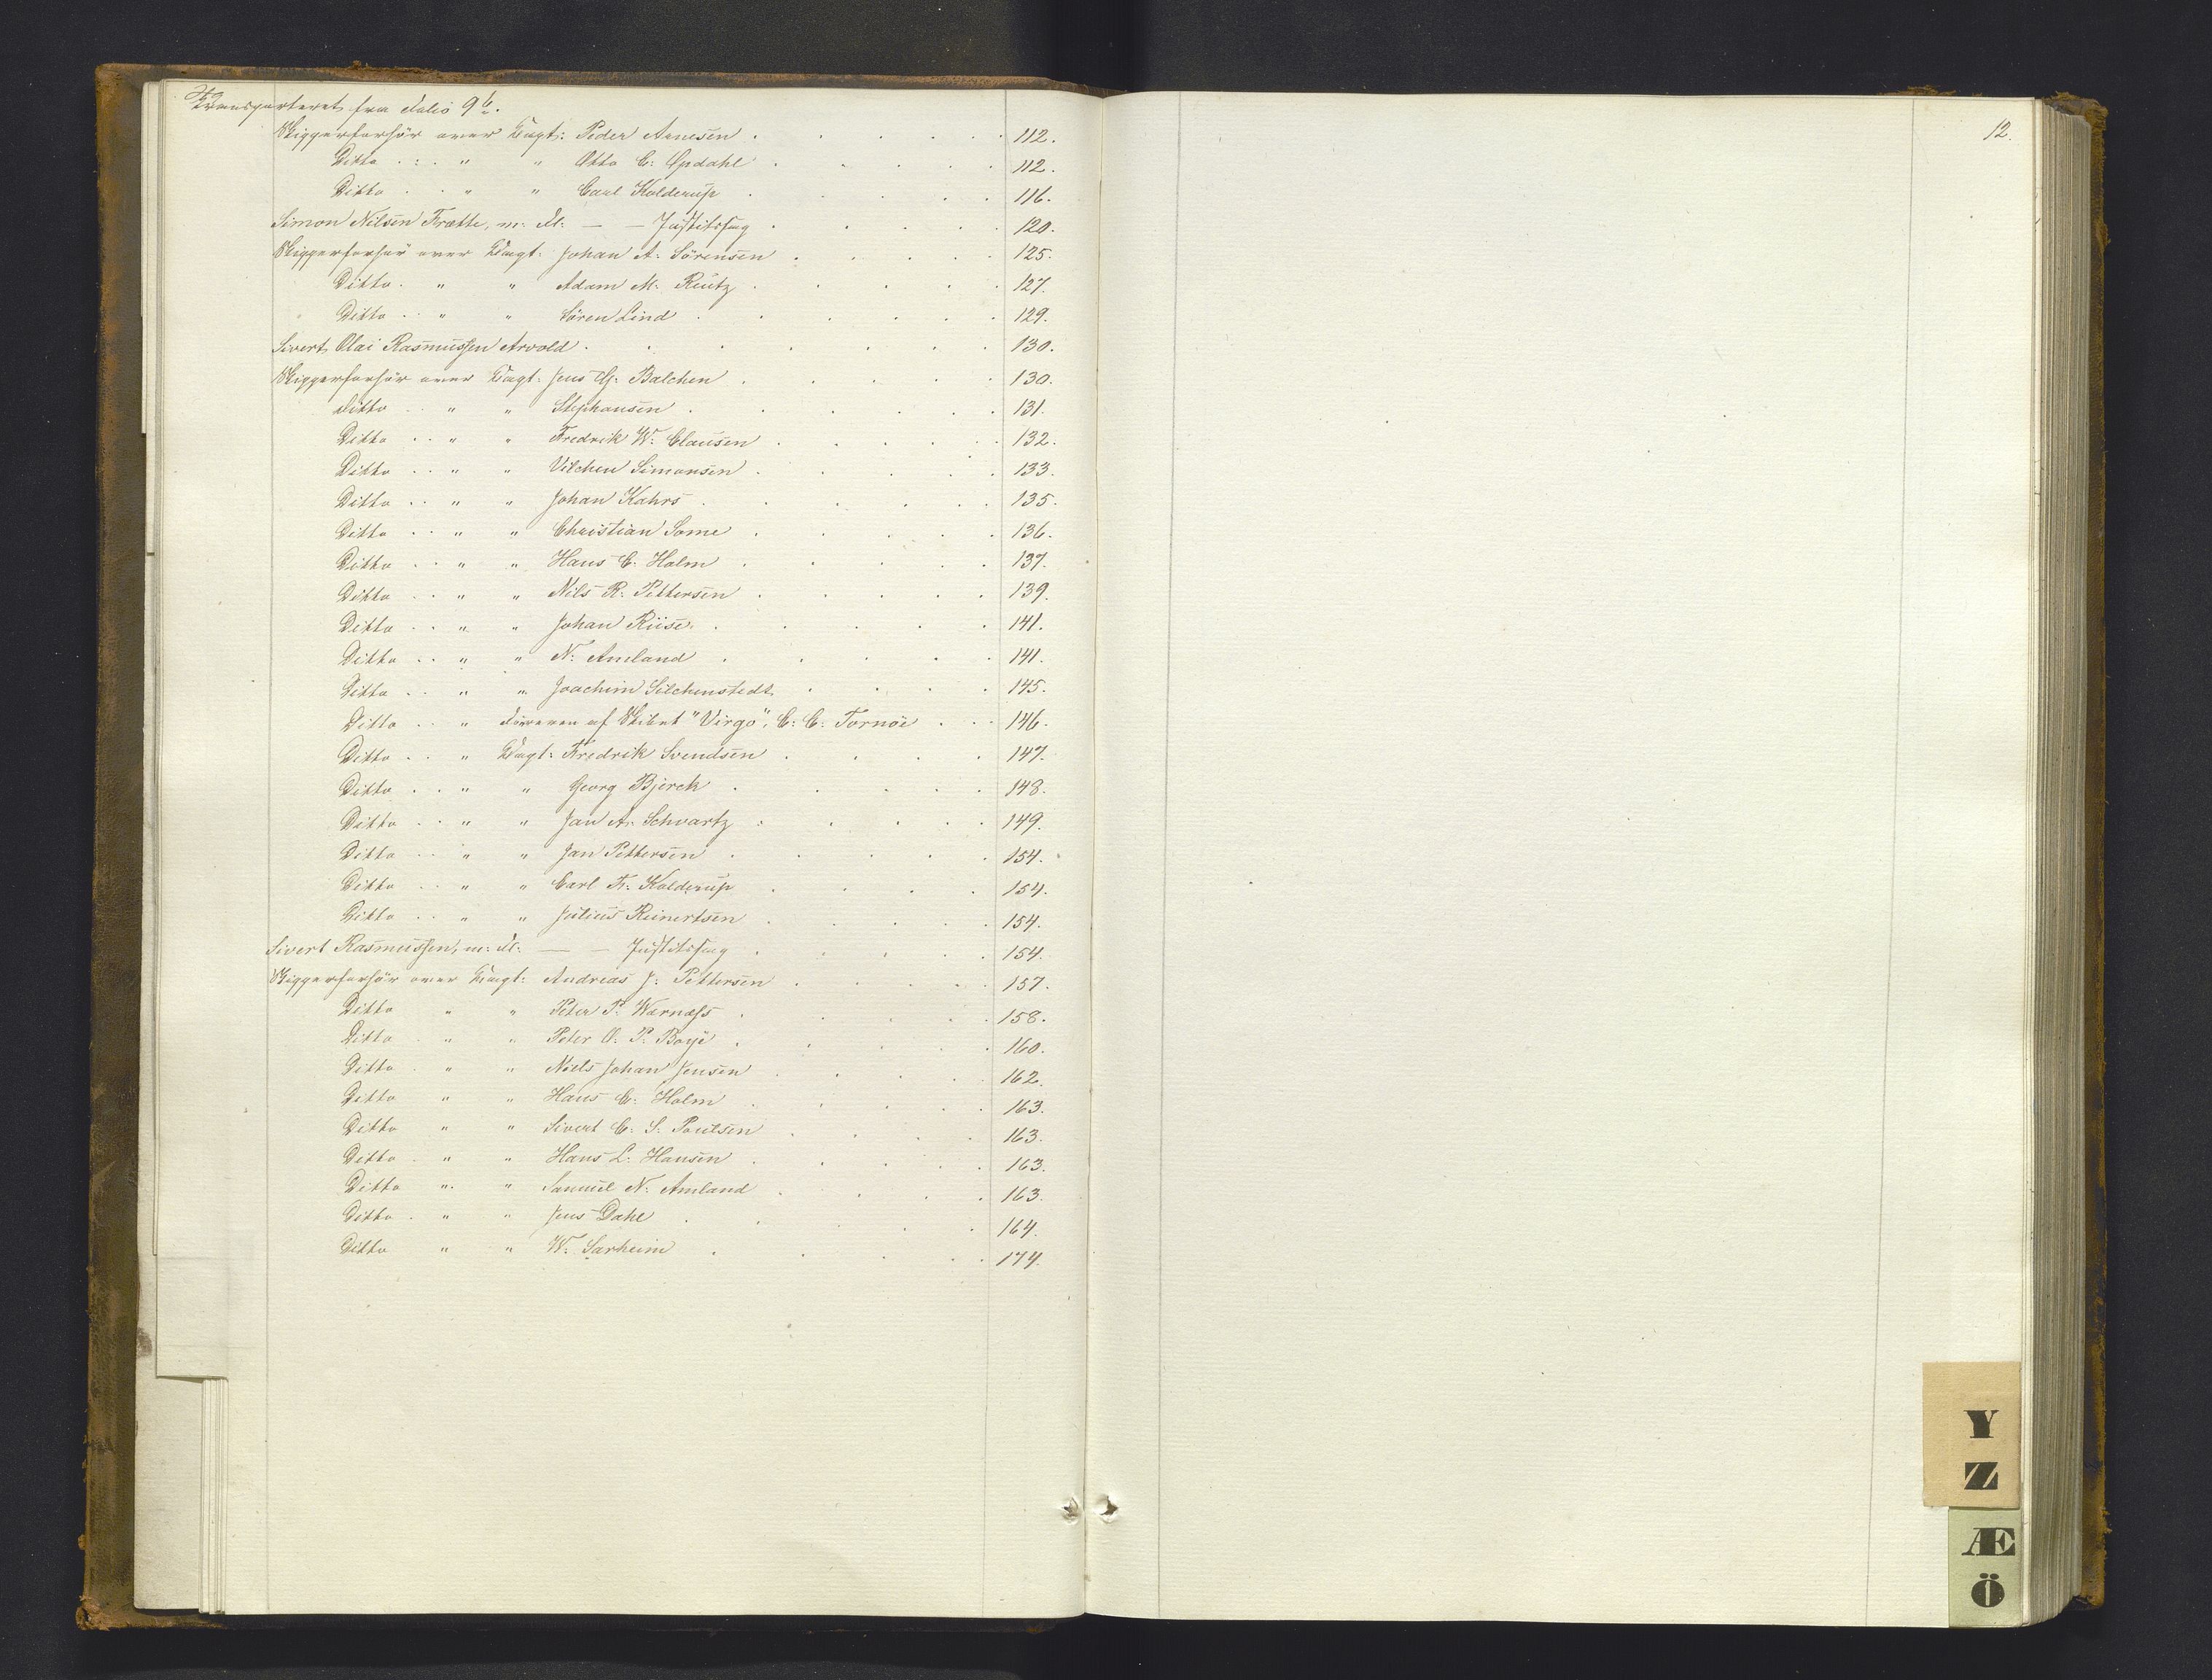 Transporteret fra Folio 9b.
Skipperforhör over Capt: Peder Arnesen . . . . . 112.
Ditto . . " " Otto C. Opdahl . . . . . 112.
Ditto . . " " Carl Kolderup . . . . . 116.
Simon Nilsen Trætte, m. Fl: — — Justitssag . . . . . 120.
Skipperforhör over Capt: Johan A. Sörensen . . . . . 125.
Ditto . " " Adam M. Reutz . . . . . 127.
Ditto . . " " Sören Lind . . . . . 129.
Sivert Olai Rasmussen Arvold . . . . . 130.
Skipperforhör over Capt: Jens G. Balchen . . . . . 130.
Ditto . . " " Stephansen . . . . . 131.
Ditto . . " " Fredrik W. Clausen . . . . . 132.
Ditto . . " " Vilchen Simonsen . . . . . 133.
Ditto . . " " Johan Kahrs . . . . . 135.
Ditto . . " " Christian Some . . . . . 136.
Ditto . . " " Hans C. Holm . . . . . 137.
Ditto . . " " Nils R. Pettersen . . . . . 139.
Ditto . . " " Johan Riise . . . . . 141.
Ditto . . " " N. Amland . . . . . 141.
Ditto . . " " Joachim Silchenstedt . . . . 145.
Ditto . . " Föreren af Skibet "Virgo", C. C. Tornöe . . . 146.
Ditto . . " Capt: Fredrik Svendsen . . . . 147.
Ditto . . " " Georg Bjerck . . . . . 148.
Ditto . . " " Jan A. Schwartz . . . . . 149.
Ditto . . " " Jan Pettersen . . . . . 154.
Ditto . . " " Carl Fr. Kolderup . . . . 154.
Ditto . . " " Julius Reinertsen . . . . . 154.
Sivert Rasmussen, m: Fl: — — Justitssag . . . . . 154.
Skipperforhör over Capt: Andreas J. Pettersen . . . . . 157.
Ditto " " Peter P. Warnass . . . . 158.
Ditto . " " Peter O. P. Boye . . . . . 160.
Ditto . " " Niels Johan Jensen . . . . . 162.
Ditto " " Hans C. Holm . . . . . 163.
Ditto " " Sivert C. S. Poulsen . . . . 163.
Ditto . " " Hans L. Hansen . . . . . 163.
Ditto " " Samuel N. Amland . . . . 163.
Ditto . " " Jens Dahl . . . . . 164.
Ditto " " W. Sarheim . . . . . 174.
12.
Y
Z
Æ
Ö